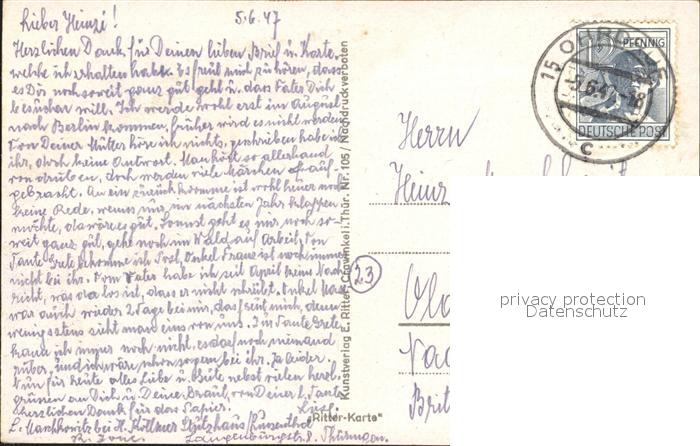 Lieber Heinz! 5.6.47
Herzlichen Dank für Deinen lieben Brief u. Karte,
welche ich erhalten habe. Es freut mich zu hören, dass
es Dir noch soweit ganz gut geht u. dass Vater Dich
besuchen will. Ich werde wohl erst im August
nach Berlin kommen, früher wird es nicht werden.
Von Deiner Mutter höre ich nichts, geschrieben habe ich
ihr, doch keine Antwort. Man hört so allerhand
von drüben, doch werden viele Märchen oft auf-
gebracht. An ein zurück kommen ist wohl keiner
keine Rede, wenns nur im nächsten Jahr klappen
möchte, da wäre es gut. Sonst geht es mir noch so-
weit ganz gut, gehe noch im Wald auf Arbeit. Von
Tante Grete bekomme ich Post, Onkel Franz ist noch immer
nicht bei ihr. Vom Vater habe ich seit April keine Nach-
richt, was da los ist, dass er nicht schreibt. Onkel Max
war auch wieder 2 Tage bei mir, das freut mich, denn
wenigstens sieht mand eins von uns. In Tante Grete
kann ich immer noch nicht, es darf noch niemand
rüber, und ich wäre schon sorgen bei ihr. Ja leider.
Nun für heute alles Liebe u. Gute nebst vielen herzl.
grüssen an Dich u. Deine Braut, von Deiner l. Tante
herzlichen Dank für das Papier.
bei H. Stutzhaus Luisenthal
Thüringen
Kunstverlag E. Ritter, Crawinkel i. Thür. Nr. 105 / Nachdruck verboten
"Ritter-Karte"
23
15 OHRDRUF
-5.6.47 18
c
PFENNIG
DEUTSCHE POST
Herrn
Heinz
privacy protection
Datenschutz